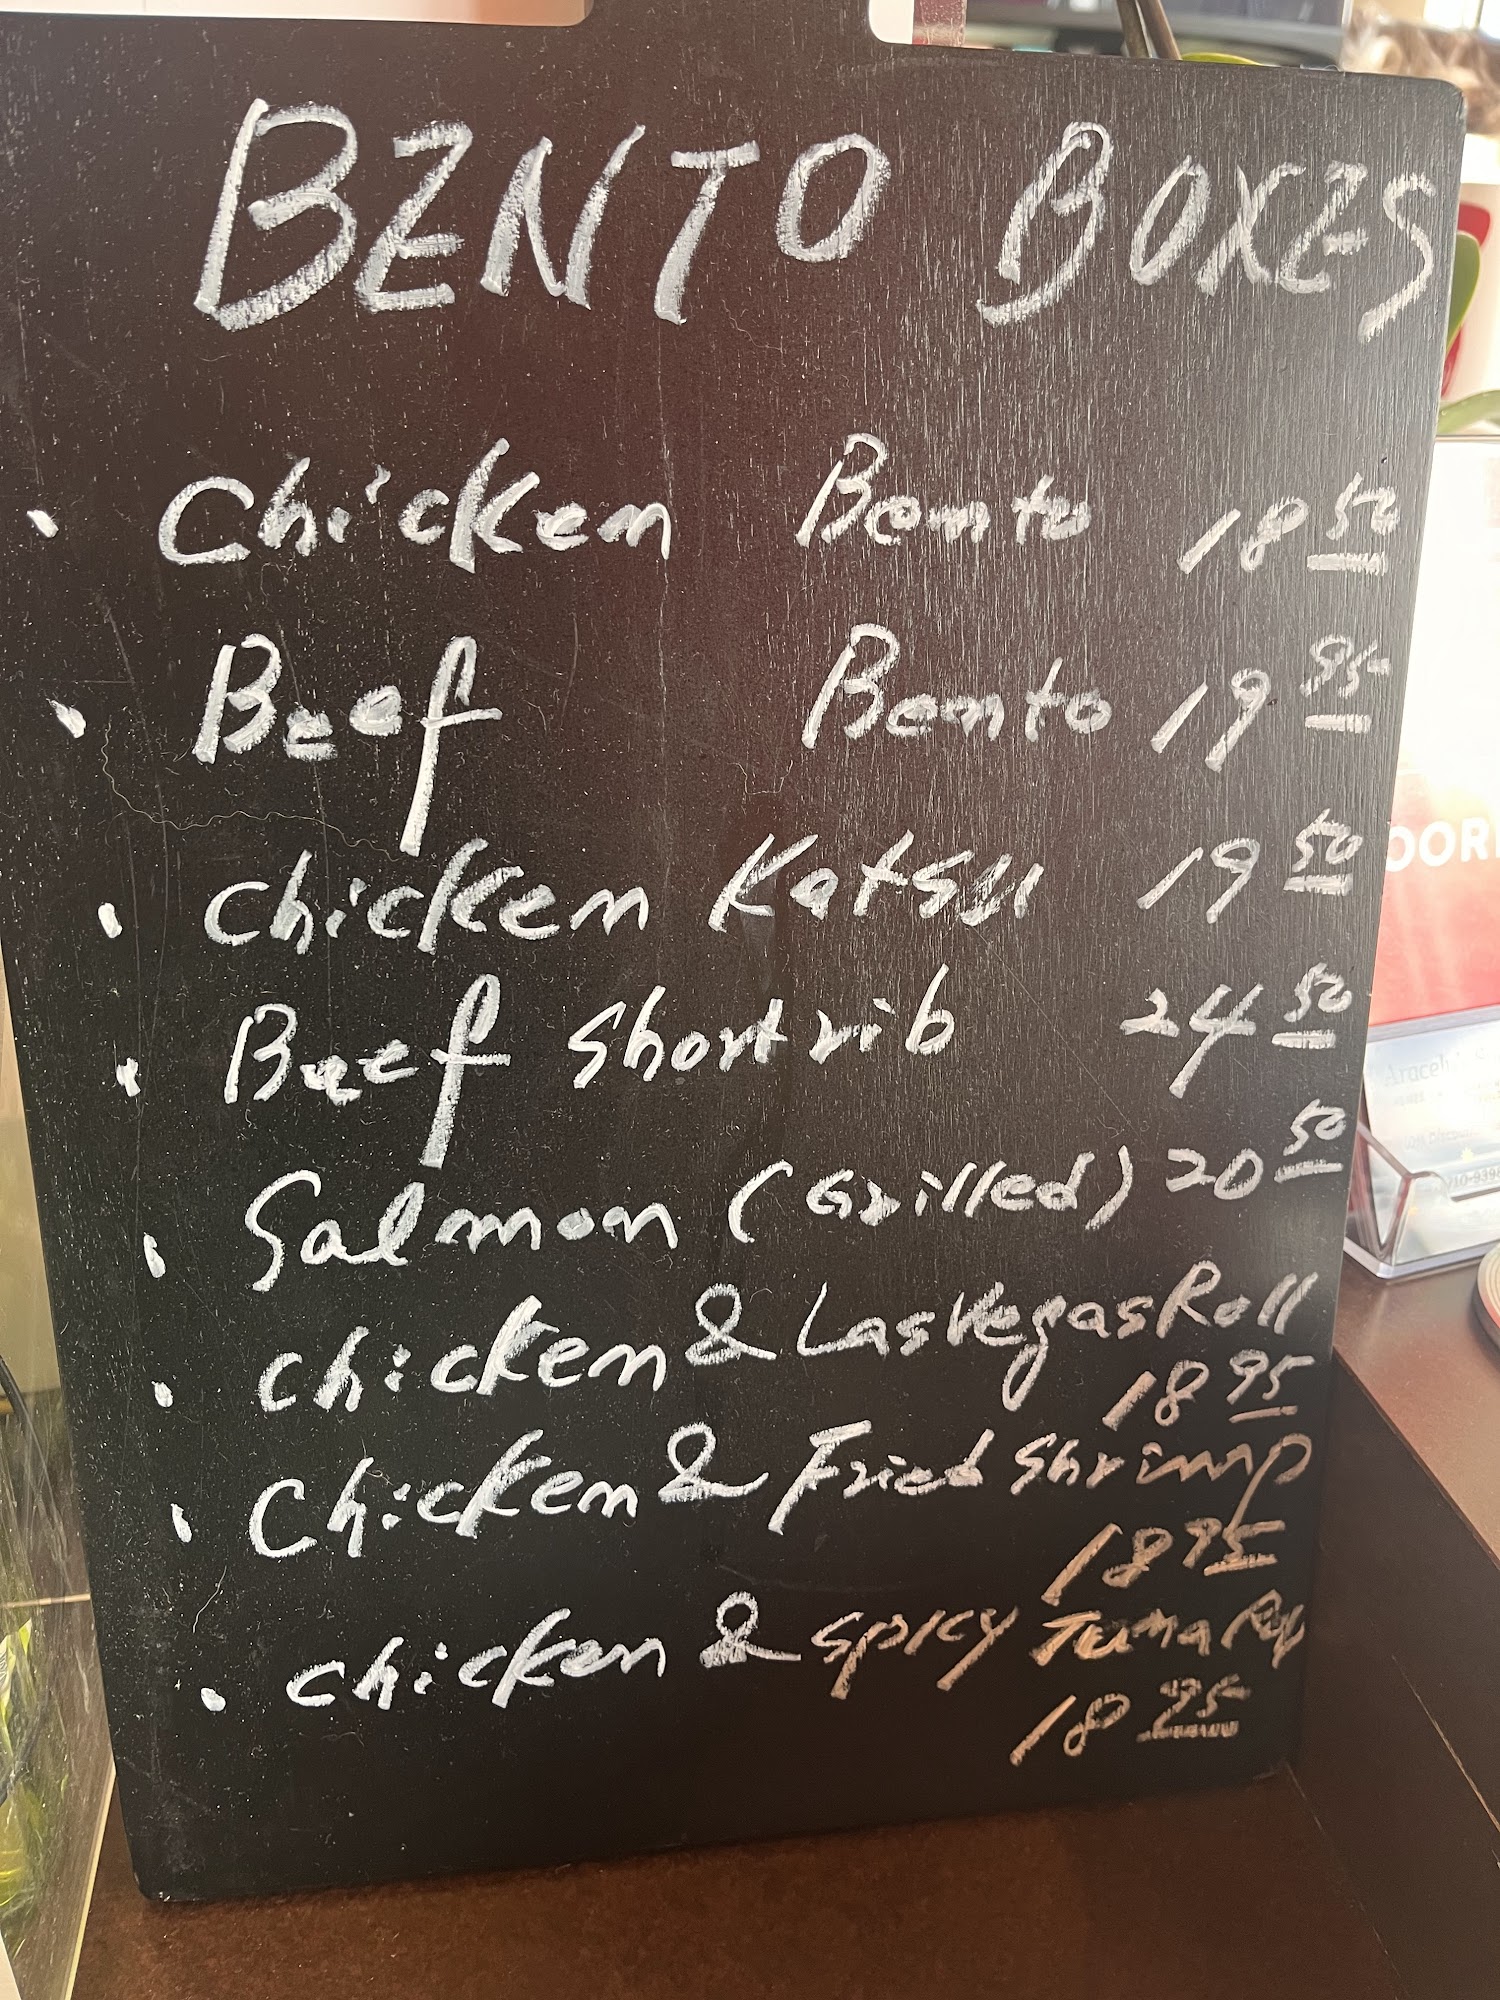 BENTO BOXES
• Chicken Bento 18 50
• Beef Bento 19 95
• Chicken Katsu 19 50
• Beef Shortrib 24 50
• Salmon (Grilled) 20 50
• Chicken & Las Vegas Roll
18 95
• Chicken & Fried Shrimp
18 95
• Chicken & Spicy Tuna
18 95
OOR